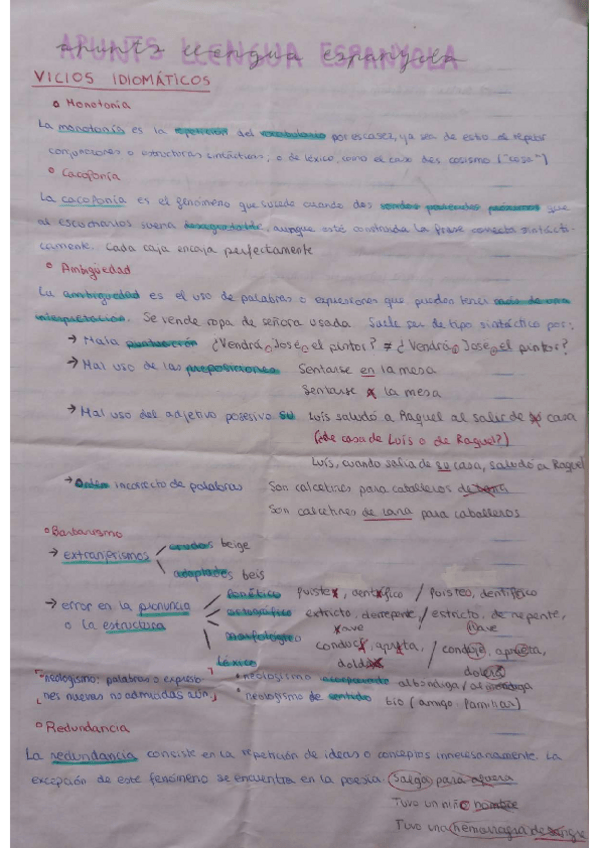 APUNTS LLENGUA ESPANYOLA
apunts llengua espanyola
VICIOS IDIOMÁTICOS
Monotonía
La monotonía es la repetición del vocabulario por escasez, ya sea de esto el repetir
conjunciones o estructuras sintácticas, o de léxico, como el caso del cosismo ("cosa")
Cacofonía
La cacofonía es el fenómeno que sucede cuando dos sonidos parecidos próximos que
al escucharlos suena desagradable, aunque esté construida la frase correcta sintácti-
camente. Cada caja encaja perfectamente
Ambigüedad
La ambigüedad es el uso de palabras o expresiones que pueden tener más de una
interpretación. Se vende ropa de señora usada. Suele ser de tipo sintáctico por:
→ Mala puntuación ¿Vendrá, José, el pintor? ≠ ¿Vendrá José, el pintor?
→ Mal uso de las preposiciones Sentarse en la mesa
Sentarse a la mesa
→ Mal uso del adjetivo posesivo su Luis saludó a Raquel al salir de su casa
(¿de casa de Luís o de Raquel?)
Luis, cuando salía de su casa, saludó a Raquel
→ Orden incorrecto de palabras Son calcetines para caballeros de lana
Son calcetines de lana para caballeros
Barbarismo
→ extranjerismos crudos beige
adaptados beis
→ error en la pronuncia fonético
o la estructura ortográfico extricto, derrepente, / estricto, de repente,
morfológico
léxico
"neologismo: palabras o expresio
nes nuevas no admitidas aún"
neologismo incorporado albóndiga / almóndiga
neologismo de sentido tío (amigo. familiar)
Redundancia
La redundancia consiste en la repetición de ideas o conceptos innecesariamente. La
excepción de este fenómeno se encuentra en la poesía. Salga para afuera
Tuvo un niño hombre
Tuvo una hemorragia de sangre